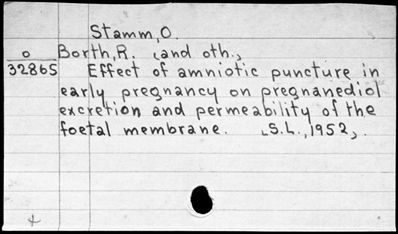 Stamm, O.
o Borth, R. (and oth.,
32865 Effect of amniotic puncture in
early pregnancy on pregnanediol
excretion and permeability of the
foetal membrane. (S.L., 1952,.